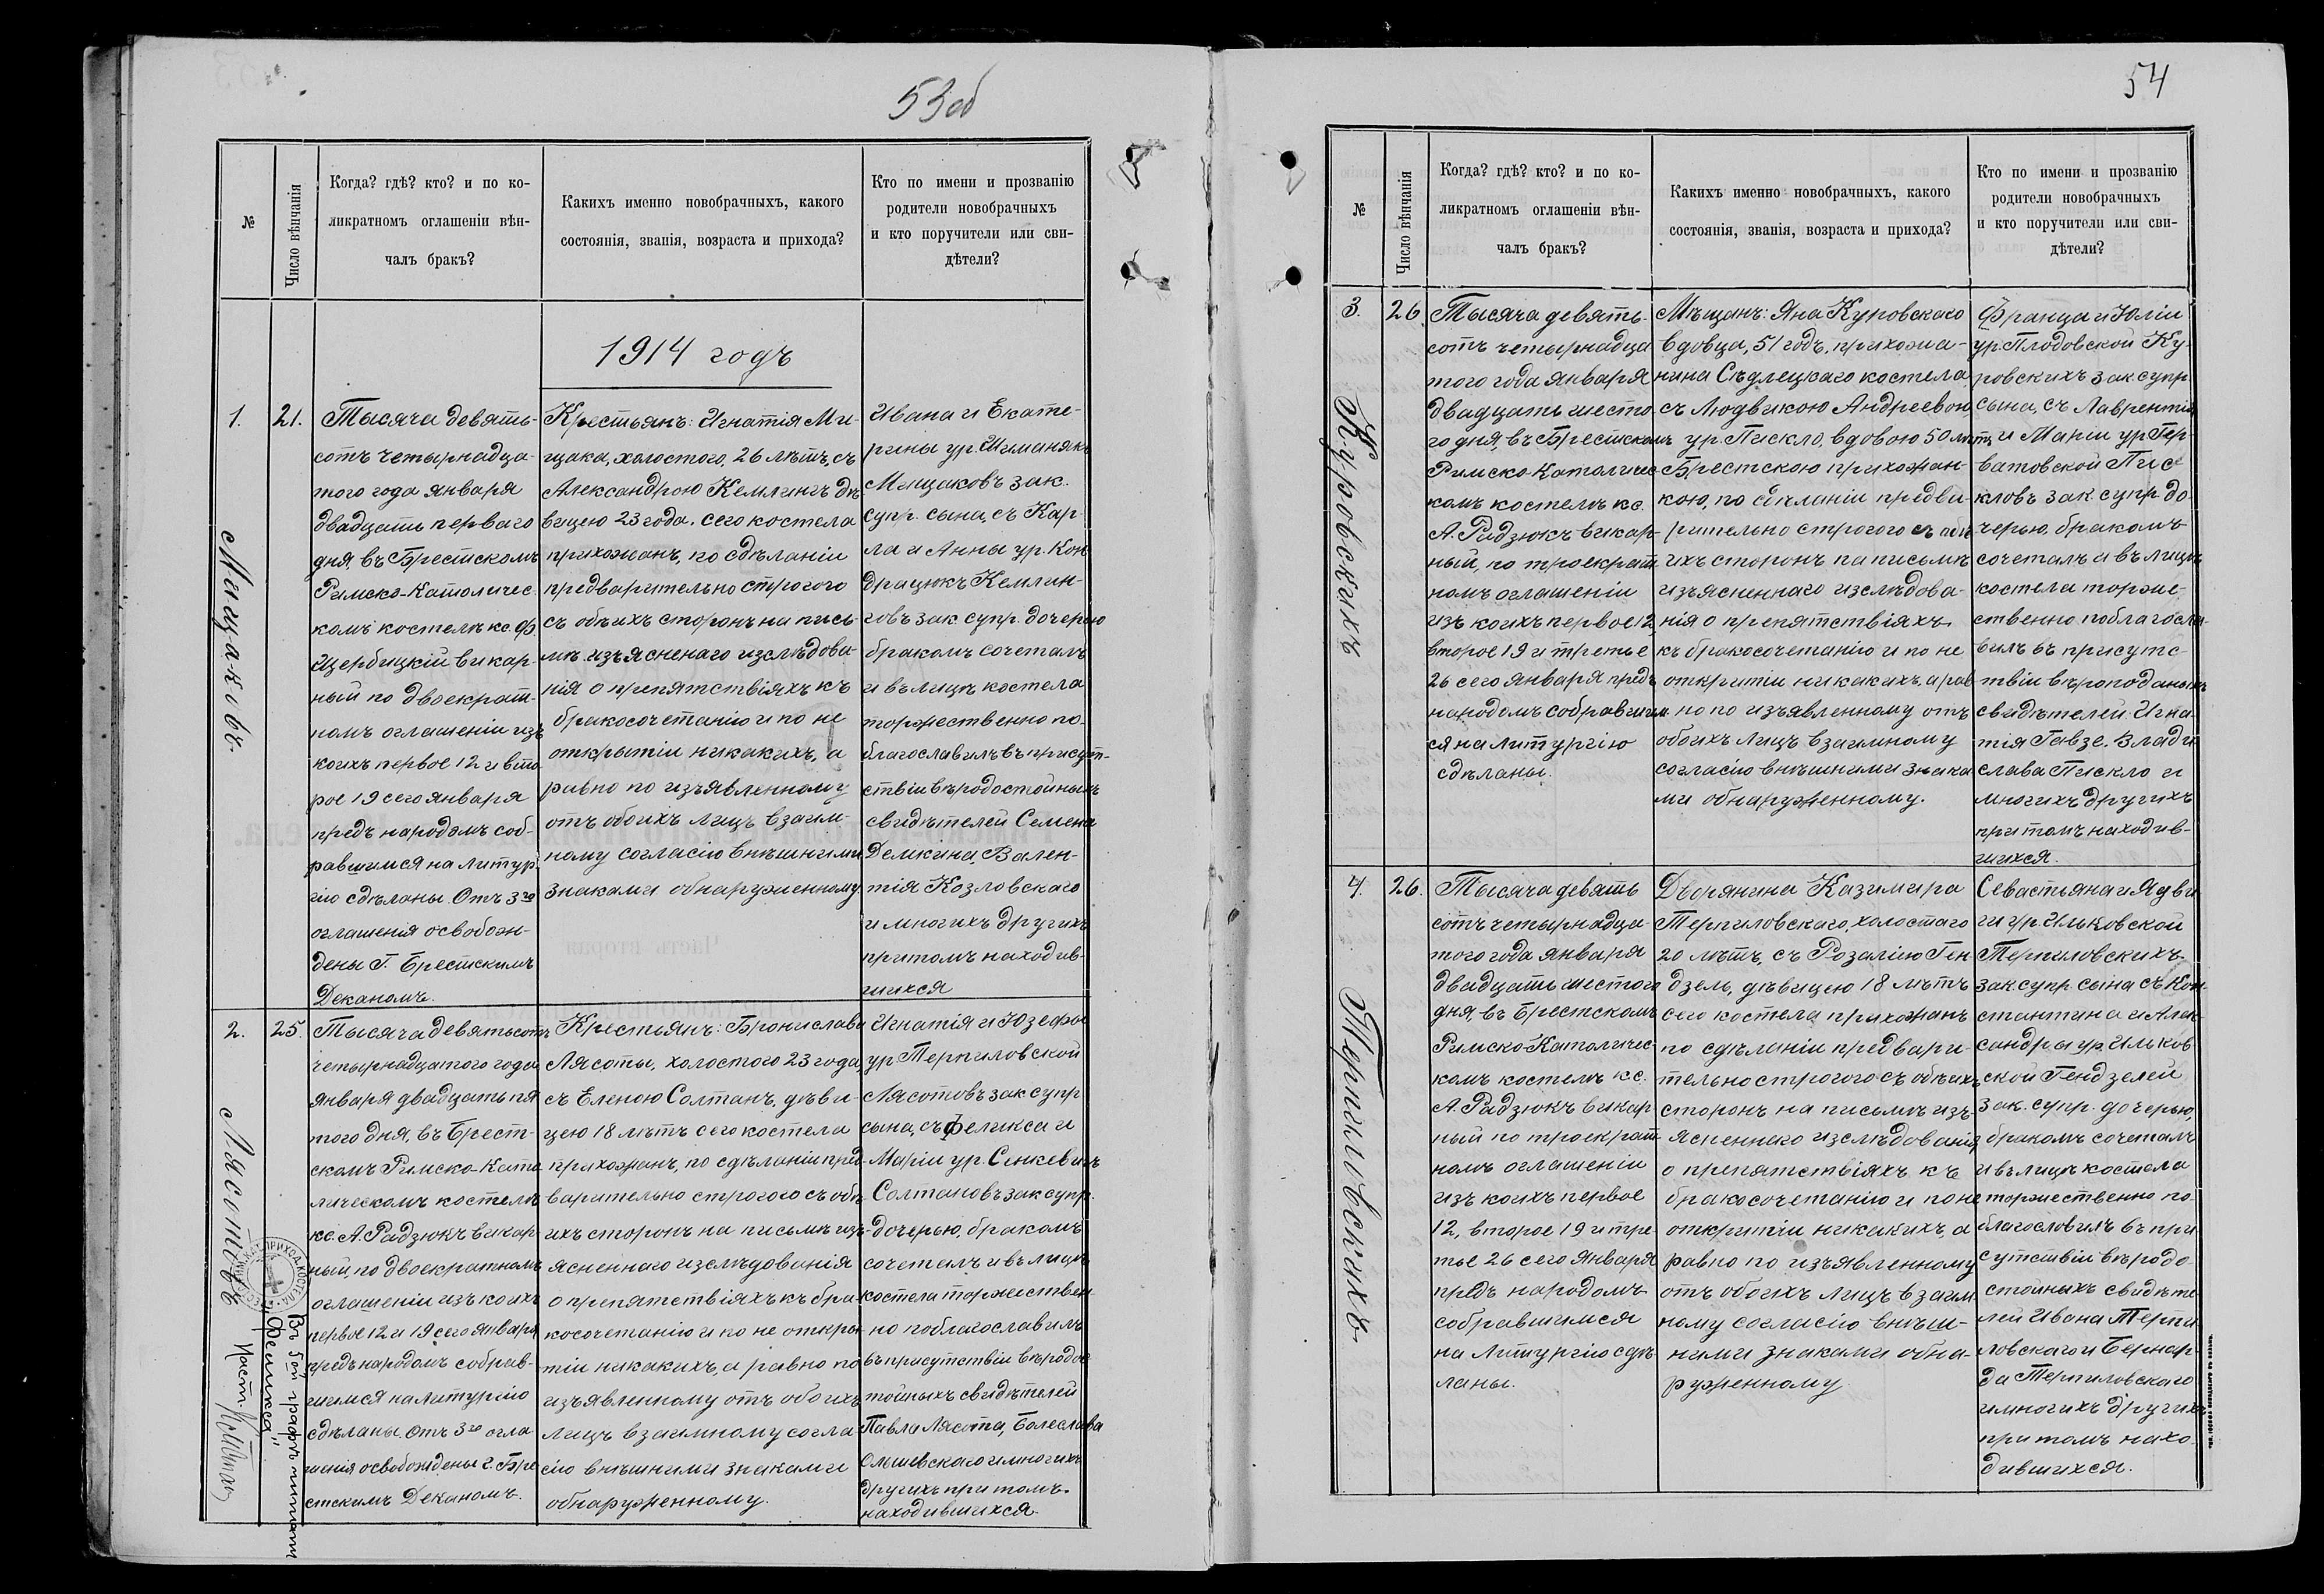 53об
№
Число вѣнчанія
Когда? гдѣ? кто? и по ко-
ликратномъ оглашеніи вѣн-
чалъ бракъ?
Какихъ именно новобрачныхъ, какого
состоянія, званія, возраста и прихода?
Кто по имени и прозванію
родители новобрачныхъ
и кто поручители или сви-
дѣтели?
1914 годъ
1.
21.
Мищаковъ.
Тысяча девять-
сотъ четырнадца-
того года января
двадцать перваго
дня, въ Брестскомъ
Римско-Католичес.
комъ костелѣ кс. Ф.
Щербицкій викар-
ный по двоекрат-
номъ оглашеніи изъ
коихъ первое 12 и вто-
рое 19 сего января
предъ народомъ соб-
равшимся на литур-
гію сдѣланы. Отъ 3го
оглашенія освобож-
дены Г. Брестскимъ
Деканомъ.
Крестьянъ: Игнатія Ми-
щака, холостого, 26 лѣтъ, съ
Александрою Кемлингъ дѣ-
вицею 23 года. сего костела
прихожанъ, по сдѣланіи
предварительно строгого
съ обѣихъ сторонъ на пись-
мѣ изъясненаго изслѣдова-
нія о препятствіяхъ къ
бракосочетанію и по не
открытіи никакихъ, а
равно по изъявленному
отъ обоихъ лицъ взаим-
ному согласію внѣшними
знаками обнаруженному.
Ивана и Екате-
рины ур. Шиманякъ
Мищаковъ зак.
супр. сына, съ Кар-
ла и Анны ур. Кон-
драцюкъ Кемлин-
говъ зак. супр. дочерью
бракомъ сочеталъ
и въ лицѣ костела
торжественно по-
благославилъ въ присут-
ствіи вѣродостойныхъ
свидѣтелей Семена
Демкина, Вален-
тія Козловскаго
и многихъ другихъ
притомъ находив-
шихся
2.
25.
Лясотовъ
Въ 5ой графѣ пишет
"Феликса"
Тысяча девятьсотъ
четырнадцатого года
января двадцать пя
того дня, въ Брест-
скомъ Римско-Като
лическомъ костелѣ
кс. А. Радзюкъ викар-
ный, по двоекратномъ
оглашеніи изъ коихъ
первое 12 и 19 сего января
предъ народомъ собрав-
шимся на литургію
сдѣланы. Отъ 3го огла
шенія освобождены г. Бре
стскимъ Деканомъ.
Крестьянъ: Бронислава
Лясоты, холостого 23 года,
съ Еленою Солтанъ, дѣви-
цею 18 лѣтъ сего костела
прихожанъ, по сдѣланіи пред-
варительно строгого съ обѣ-
ихъ сторонъ на письмѣ изъ-
ясненнаго изслѣдованія
о препятствіяхъ къ бра-
косочетанію и по не откры-
тіи никакихъ, а равно по
изъявленному отъ обоихъ
лицъ взаимному согла-
сію внѣшними знаками
обнаруженному.
Игнатія и Юзефы
ур. Терпиловской
Лясотовъ зак супр
сына, съ Феликса и
Маріи ур. Сенкевичъ
Солтановъ зак супр.
дочерью, бракомъ
сочеталъ и въ лицѣ
костела торжествен
но поблагославилъ
въ присутствіи вѣродос
тойныхъ свидѣтелей
Павла Лясота, Болеслава
Ольшевскаго и многихъ
другихъ притомъ
находившихся.
54
№
Число вѣнчанія
Когда? гдѣ? кто? и по ко-
ликратномъ оглашеніи вѣн-
чалъ бракъ?
Какихъ именно новобрачныхъ, какого
состоянія, званія, возраста и прихода?
Кто по имени и прозванію
родители новобрачныхъ
и кто поручители или сви-
дѣтели?
3.
26.
Куровскихъ
Тысяча девять-
сотъ четырнадца
того года января
двадцать шесто-
го дня, въ Брестскомъ
Римско-Католичес
комъ костелѣ кс.
А. Радзюкъ викар-
ный, по троекрат
номъ оглашеніи
изъ коихъ первое 12,
второе 19 и третье
26 сего января предъ
народомъ собравшим
ся на литургію
сдѣланы.
Мѣщанъ: Яна Куровскаго
вдовца, 51 годъ, прихожа-
нина Сѣдлецкаго костела
съ Людвикою Андреевою
ур. Пискло, вдовою 50 лѣтъ,
Брестскою прихожан-
кою, по сдѣланіи предва-
рительно строгого съ обѣ
ихъ сторонъ на письмѣ
изъясненнаго изслѣдова-
нія о препятствіяхъ
къ бракосочетанію и по не
открытіи никакихъ, а рав
но по изъявленному отъ
обоихъ лицъ взаимному
согласію внѣшними знака
ми обнаруженному.
Франца и Юліи
ур. Плодовской Ку-
ровскихъ зак супр.
сына, съ Лаврентія
и Маріи ур. Гер-
ватовской Пис
кловъ зак. супр. до-
черью, бракомъ
сочеталъ и въ лицѣ
костела торже-
ственно поблагосла-
вилъ въ присутс-
твіи вѣроподаныхъ
свидѣтелей: Игна-
тія Гавзе, Влади
слава Пискло и
многихъ другихъ
притомъ находив-
шихся.
4.
26.
Терпиловскихъ
Тысяча девять
сотъ четырнадца-
того года января
двадцать шестого
дня, въ Брестскомъ
Римско-Католичес-
комъ костелѣ кс.
А. Радзюкъ викар
ный по троекрат-
номъ оглашеніи
изъ коихъ первое
12, второе 19 и тре-
тье 26 сего января
предъ народомъ
собравшимся
на литургію сдѣ-
ланы.
Дворянина Казимира
Терпиловскаго, холостаго
20 лѣтъ, съ Розаліею Ген
дзель, дѣвицею 18 лѣтъ
сего костела прихожанъ
по сдѣланіи предвари-
тельно строгого съ обѣихъ
сторонъ на письмѣ изъ-
ясненнаго изслѣдованія
о препятствіяхъ къ
бракосочетанію и по не
открытіи никакихъ, а
равно по изъявленному
отъ обоихъ лицъ взаим
ному согласію внѣш-
ними знаками обна-
руженному.
Севастьяна и Ядви
ги ур. Ильковской
Терпиловскихъ
зак. супр. сына съ Кон
стантина и Алек
сандры ур. Ильков
ской Гендзелей
зак. супр. дочерью,
бракомъ сочеталъ
и въ лицѣ костела
торжественно по-
благословилъ въ при
сутствіи вѣродо
стойныхъ свидѣте
лей Ивана Терпи
ловскаго и Бернар
да Терпиловскаго
и многихъ другихъ
притомъ нахо
дившихся.